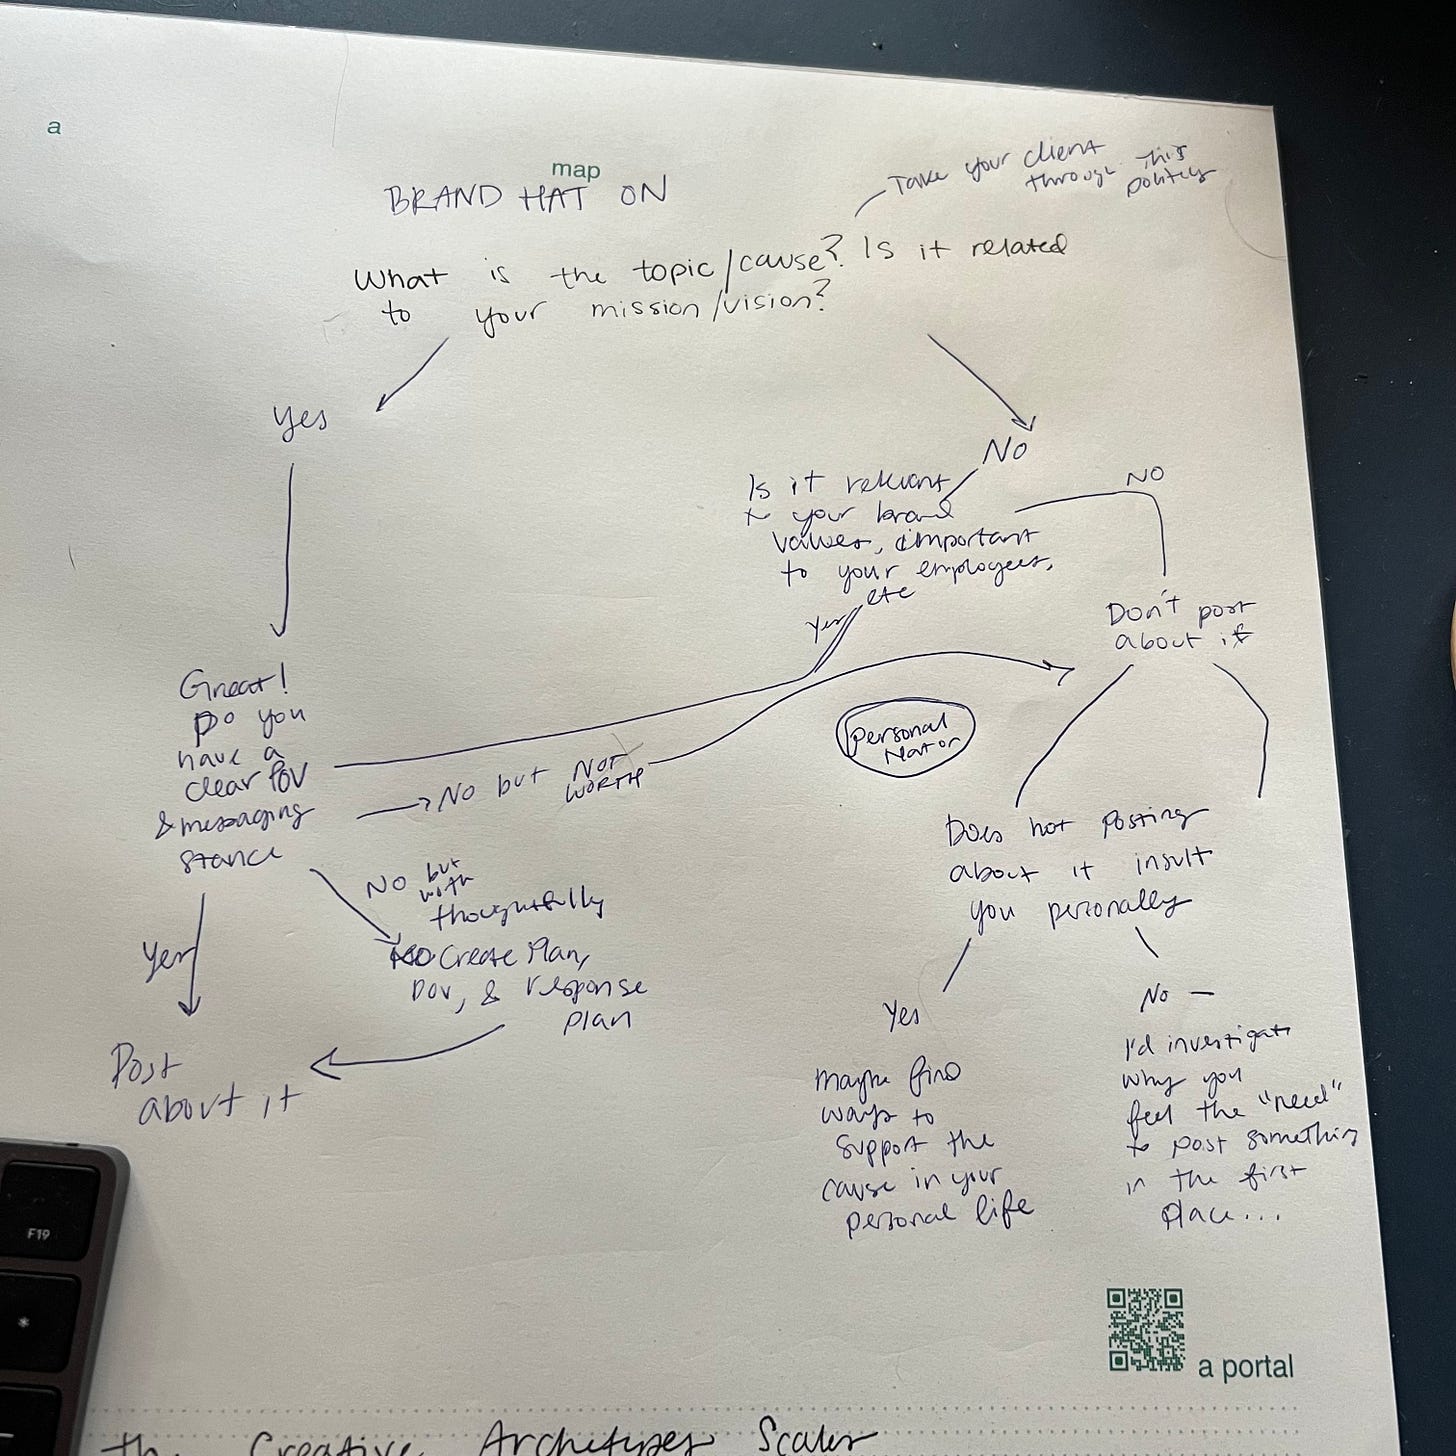 a
map
BRAND HAT ON
Take your client
through this
politely
What is the topic/cause? Is it related
to your mission/vision?
Yes
No
Is it relevant
to your brand
values, important
to your employees,
etc
NO
Yes
Don't post
about it
Great!
Do you
have a
clear POV
& messaging
stance
No but NOT
WORTH
Personal
No but
with
thoughtfully
Create Plan,
POV, & response
plan
Yes
Post
about it
Does not posting
about it insult
you personally
Yes
maybe find
ways to
support the
cause in your
personal life
No —
I'd investigate
why you
feel the "need"
to post something
in the first
place...
F19
*
a portal
the Creative Archetypes Scales